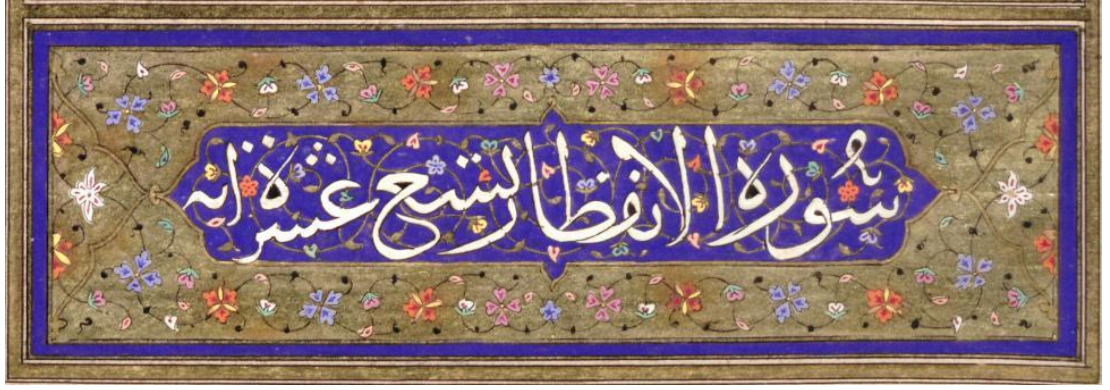 سورة الانفطار تسع عشرة اية